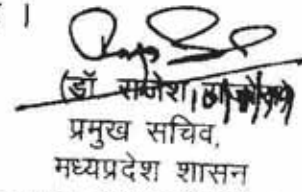 ।
(डॉ राजेश
प्रमुख सचिव,
मध्यप्रदेश शासन